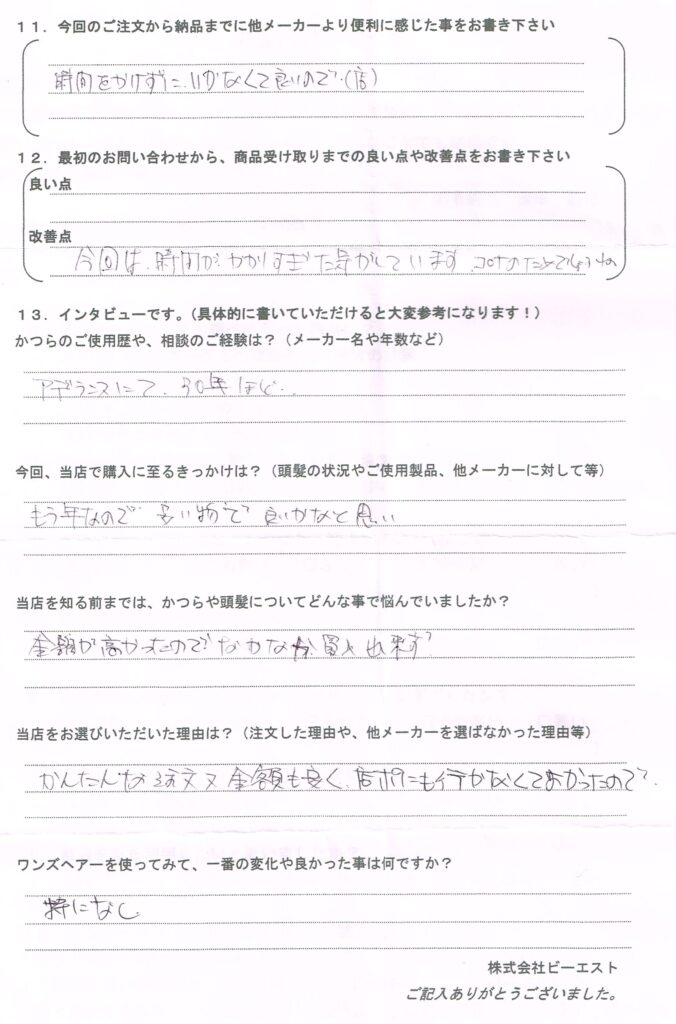 １１．今回のご注文から納品までに他メーカーより便利に感じた事をお書き下さい
時間をかけずに、いかなくて良いので、(店)
１２．最初のお問い合わせから、商品受け取りまでの良い点や改善点をお書き下さい
良い点
改善点
今回は、時間が、かかりすぎた気がしています コロナのためでしょうね
１３．インタビューです。（具体的に書いていただけると大変参考になります！）
かつらのご使用歴や、相談のご経験は？（メーカー名や年数など）
アデランスにて、30年ほど、
今回、当店で購入に至るきっかけは？（頭髪の状況やご使用製品、他メーカーに対して等）
もう年なので 安い物で 良いかなと思い
当店を知る前までは、かつらや頭髪についてどんな事で悩んでいましたか？
金額が高かったので なかなか 買え 出来ず
当店をお選びいただいた理由は？（注文した理由や、他メーカーを選ばなかった理由等）
かんたんな注文又金額も安く、店ポにも行かなくてよかったので、
ワンズヘアーを使ってみて、一番の変化や良かった事は何ですか？
特になし
株式会社ビーエスト
ご記入ありがとうございました。